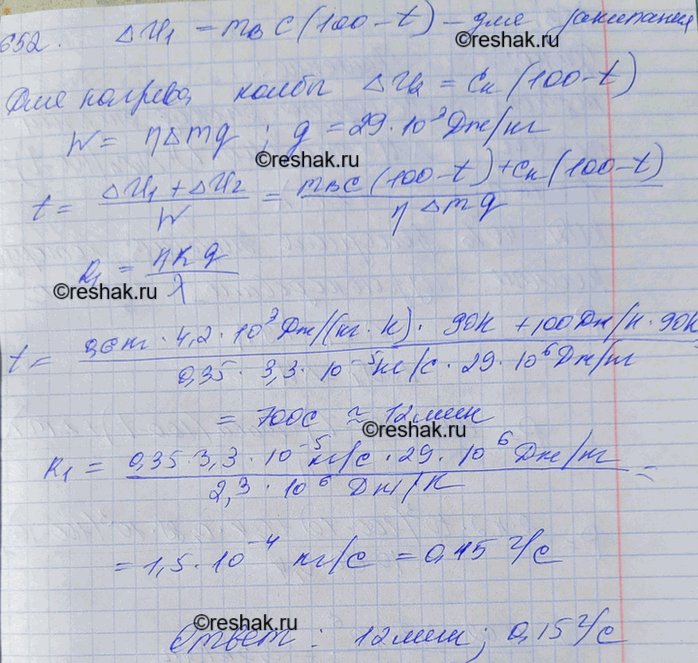 652. ΔU₁ = mв C (100 - t) - для закипания
Для нагрева колбы ΔU₂ = Cк (100 - t)
©reshak.ru
W = ηΔmq ; q = 29·10³ Дж/кг
©reshak.ru
t = (ΔU₁ + ΔU₂)/W = (mвC (100 - t) + Cк (100 - t))/(η Δm q)
R₁ = ηkq/λ
©reshak.ru
t = (0,6кг · 4,2 · 10³ Дж/(кг · К) · 90К + 100 Дж/К · 90К)/(0,35 · 3,3 · 10⁻⁵ кг/с · 29 · 10⁶ Дж/кг) =
= 700с ≈ 12 мин
R₁ = (0,35·3,3 · 10⁻⁵ кг/с · 29 · 10⁶ Дж/кг)/(2,3 · 10⁶ Дж/К) =
= 1,5 · 10⁻⁴ кг/с = 0,15 г/с
©reshak.ru
Ответ : 12 мин ; 0,15 г/с